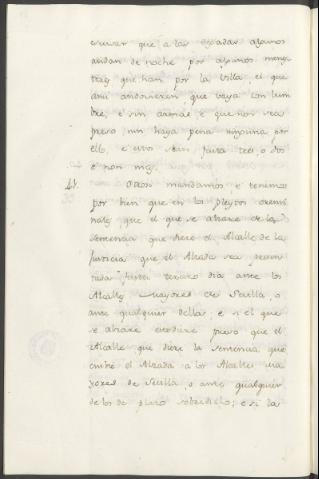 escusar que a las vegadas algunos
andan de noche por algunos menes
tres que han por la Villa, el que
ansi andovieren, que vaya con lum
bre, e sin armas, e que non sea
preso, nin haya pena ninguna por
ello, e esto sean fasta tres, o dos
e non mas.
41. Otrosi mandamos, e tenemos
por bien que en los pleytos crimi
nales, que el que se alzare de la
sentencia que diere el Alcalle de la
Justicia que el Alzada sea presen
tada fasta tercero dia ante los
Alcalles mayores de Sevilla, o
ante qualquier dellos; e si el que
se alzare estubiere preso que el
Alcalle que diere la sentencia que
embie el Alzada a los Alcalles ma
yores de Sevilla, o ante qualquier
dellos de plazo sobredicho; e si la